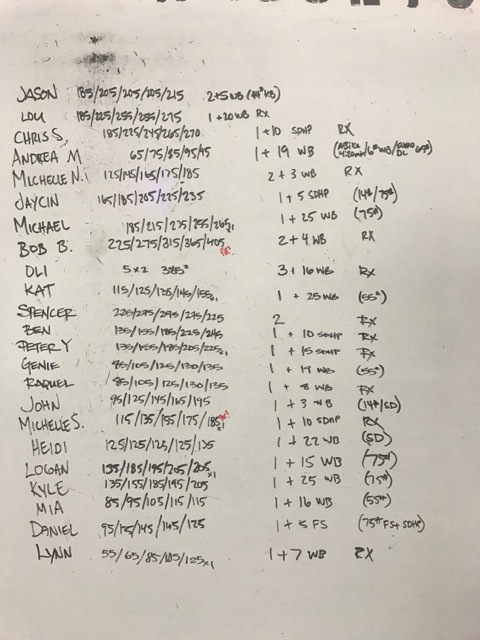 JASON 185/205/205/205/215 2+5 WB
LOU 185/225/255/255/275 1+20 WB RX
CHRIS S, 185/225/245/265/270 1+10 SDHP RX
ANDREA M 65/75/85/95/95 1+19 WB
MICHELLE N. 125/145/165/175/185 2+3 WB RX
JAYCIN 165/185/205/225/235 1+5 SDHP (14#/75#)
MICHAEL 185/215/235/255/265x1 1+25 WB (75#)
BOB B. 225/275/315/365/405 2+4 WB RX
OLI 5x2 385# 3+16 WB RX
KAT 115/125/135/145/155x1 1+25 WB (55#)
SPENCER 225/275/275/275/225 2 RX
BEN 135/155/185/225/245 1+10 SDHP RX
PETER Y 135/155/185/205/225x1 1+15 SDHP RX
GENIE 85/105/125/130/135 1+19 WB (55#)
RAQUEL 85/105/125/130/135 1+8 WB RX
JOHN 95/125/145/165/195 1+3 WB (14#/SD)
MICHELLE S. 115/135/155/175/185x1 1+10 SDHP RX
HEIDI 125/125/125/125/135 1+22 WB (SD)
LOGAN 135/185/195/205/205x1 1+15 WB (75#)
KYLE 135/155/185/195/205 1+25 WB (75#)
MIA 85/95/105/115/115 1+16 WB (55#)
DANIEL 95/115/145/145/125 1+5 FS (75# FS+SDHP)
LYNN 55/65/85/105/125x1 1+7 WB RX